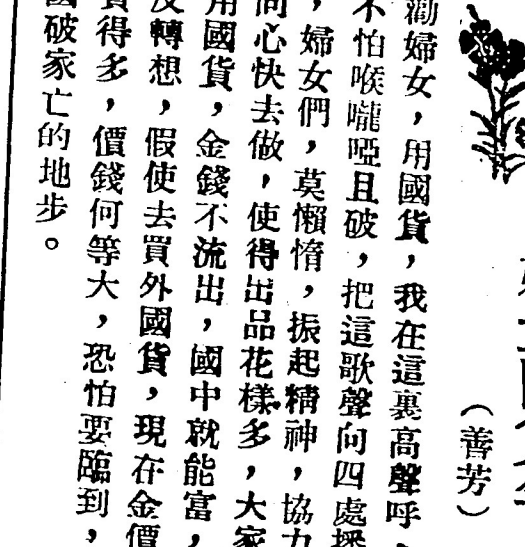 （善芳）
勸婦女，用國貨，我在這裏高聲呼，
不怕喉嚨啞且破，把這歌聲向四處播
，婦女們，莫懶惰，振起精神，協力
同心快去做，使得出品花樣多，大家
用國貨，金錢不流出，國中就能富，
反轉想，假使去買外國貨，現在金價
貴得多，價錢何等大，恐怕要臨到，
國破家亡的地步。